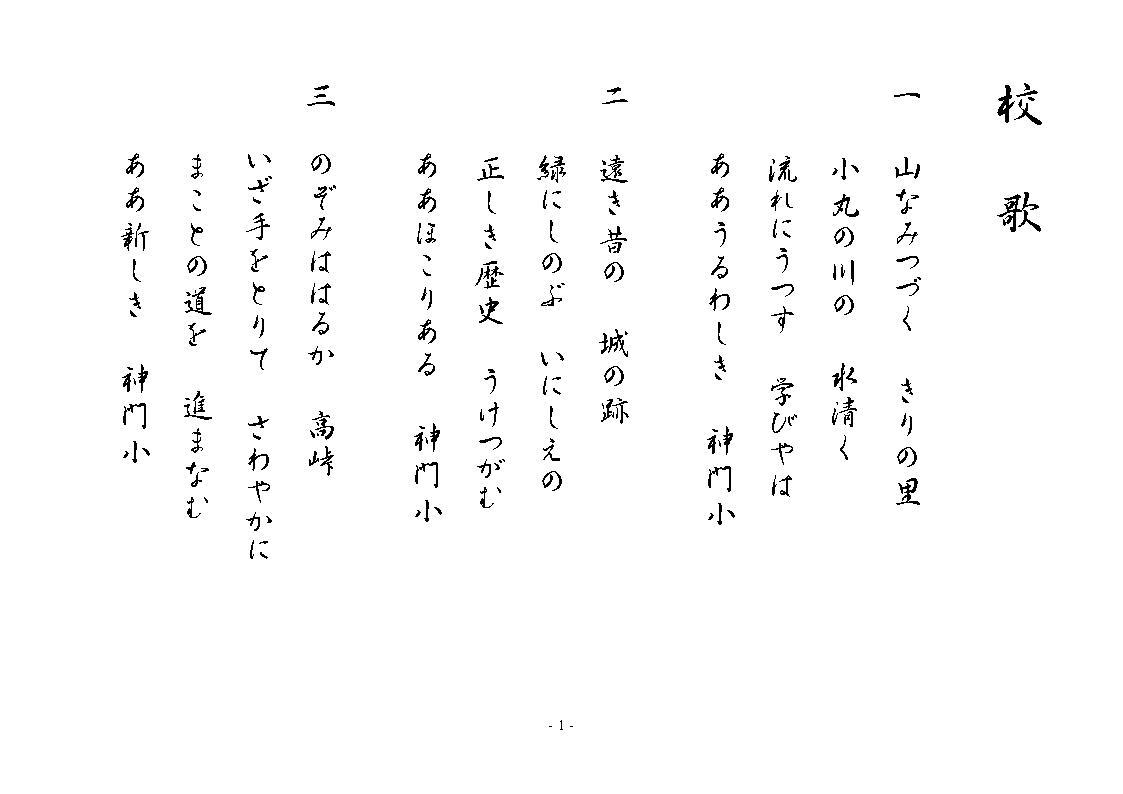 校　歌
一　山なみつづく　きりの里
小丸の川の　水清く
流れにうつす　学びやは
ああうるわしき　神門小
二　遠き昔の　城の跡
緑にしのぶ　いにしえの
正しき歴史　うけつがむ
ああほこりある　神門小
三　のぞみははるか　高峠
いざ手をとりて　さわやかに
まことの道を　進まなむ
ああ新しき　神門小
- 1 -